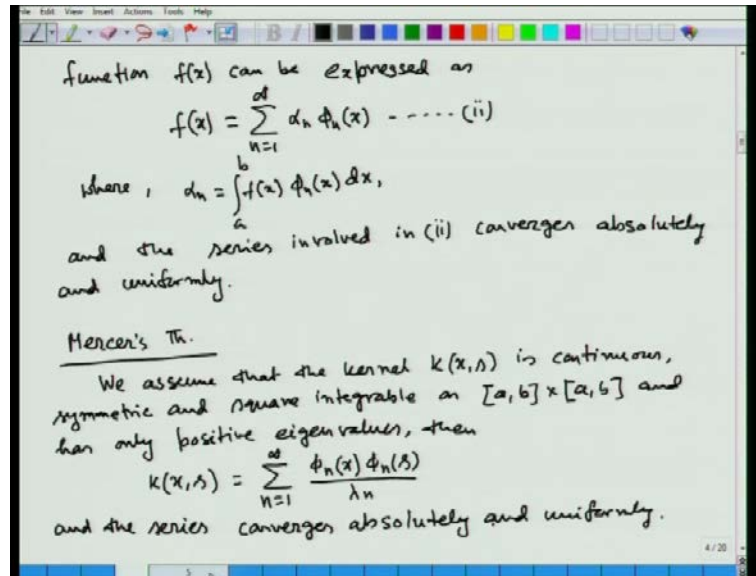 File Edit View Insert Actions Tools Help
function f(x) can be expressed as
f(x) = ∑_{n=1}^{∞} α_n ϕ_n(x) ----- (ii)
where, α_n = ∫_a^b f(x) ϕ_n(x) dx,
and the series involved in (ii) converges absolutely
and uniformly.
Mercer's Th.
We assume that the kernel k(x,s) is continuous,
symmetric and square integrable on [a,b] × [a,b] and
has only positive eigenvalues, then
k(x,s) = ∑_{n=1}^{∞} ϕ_n(x) ϕ_n(s) / λ_n
and the series converges absolutely and uniformly.
4/20
5